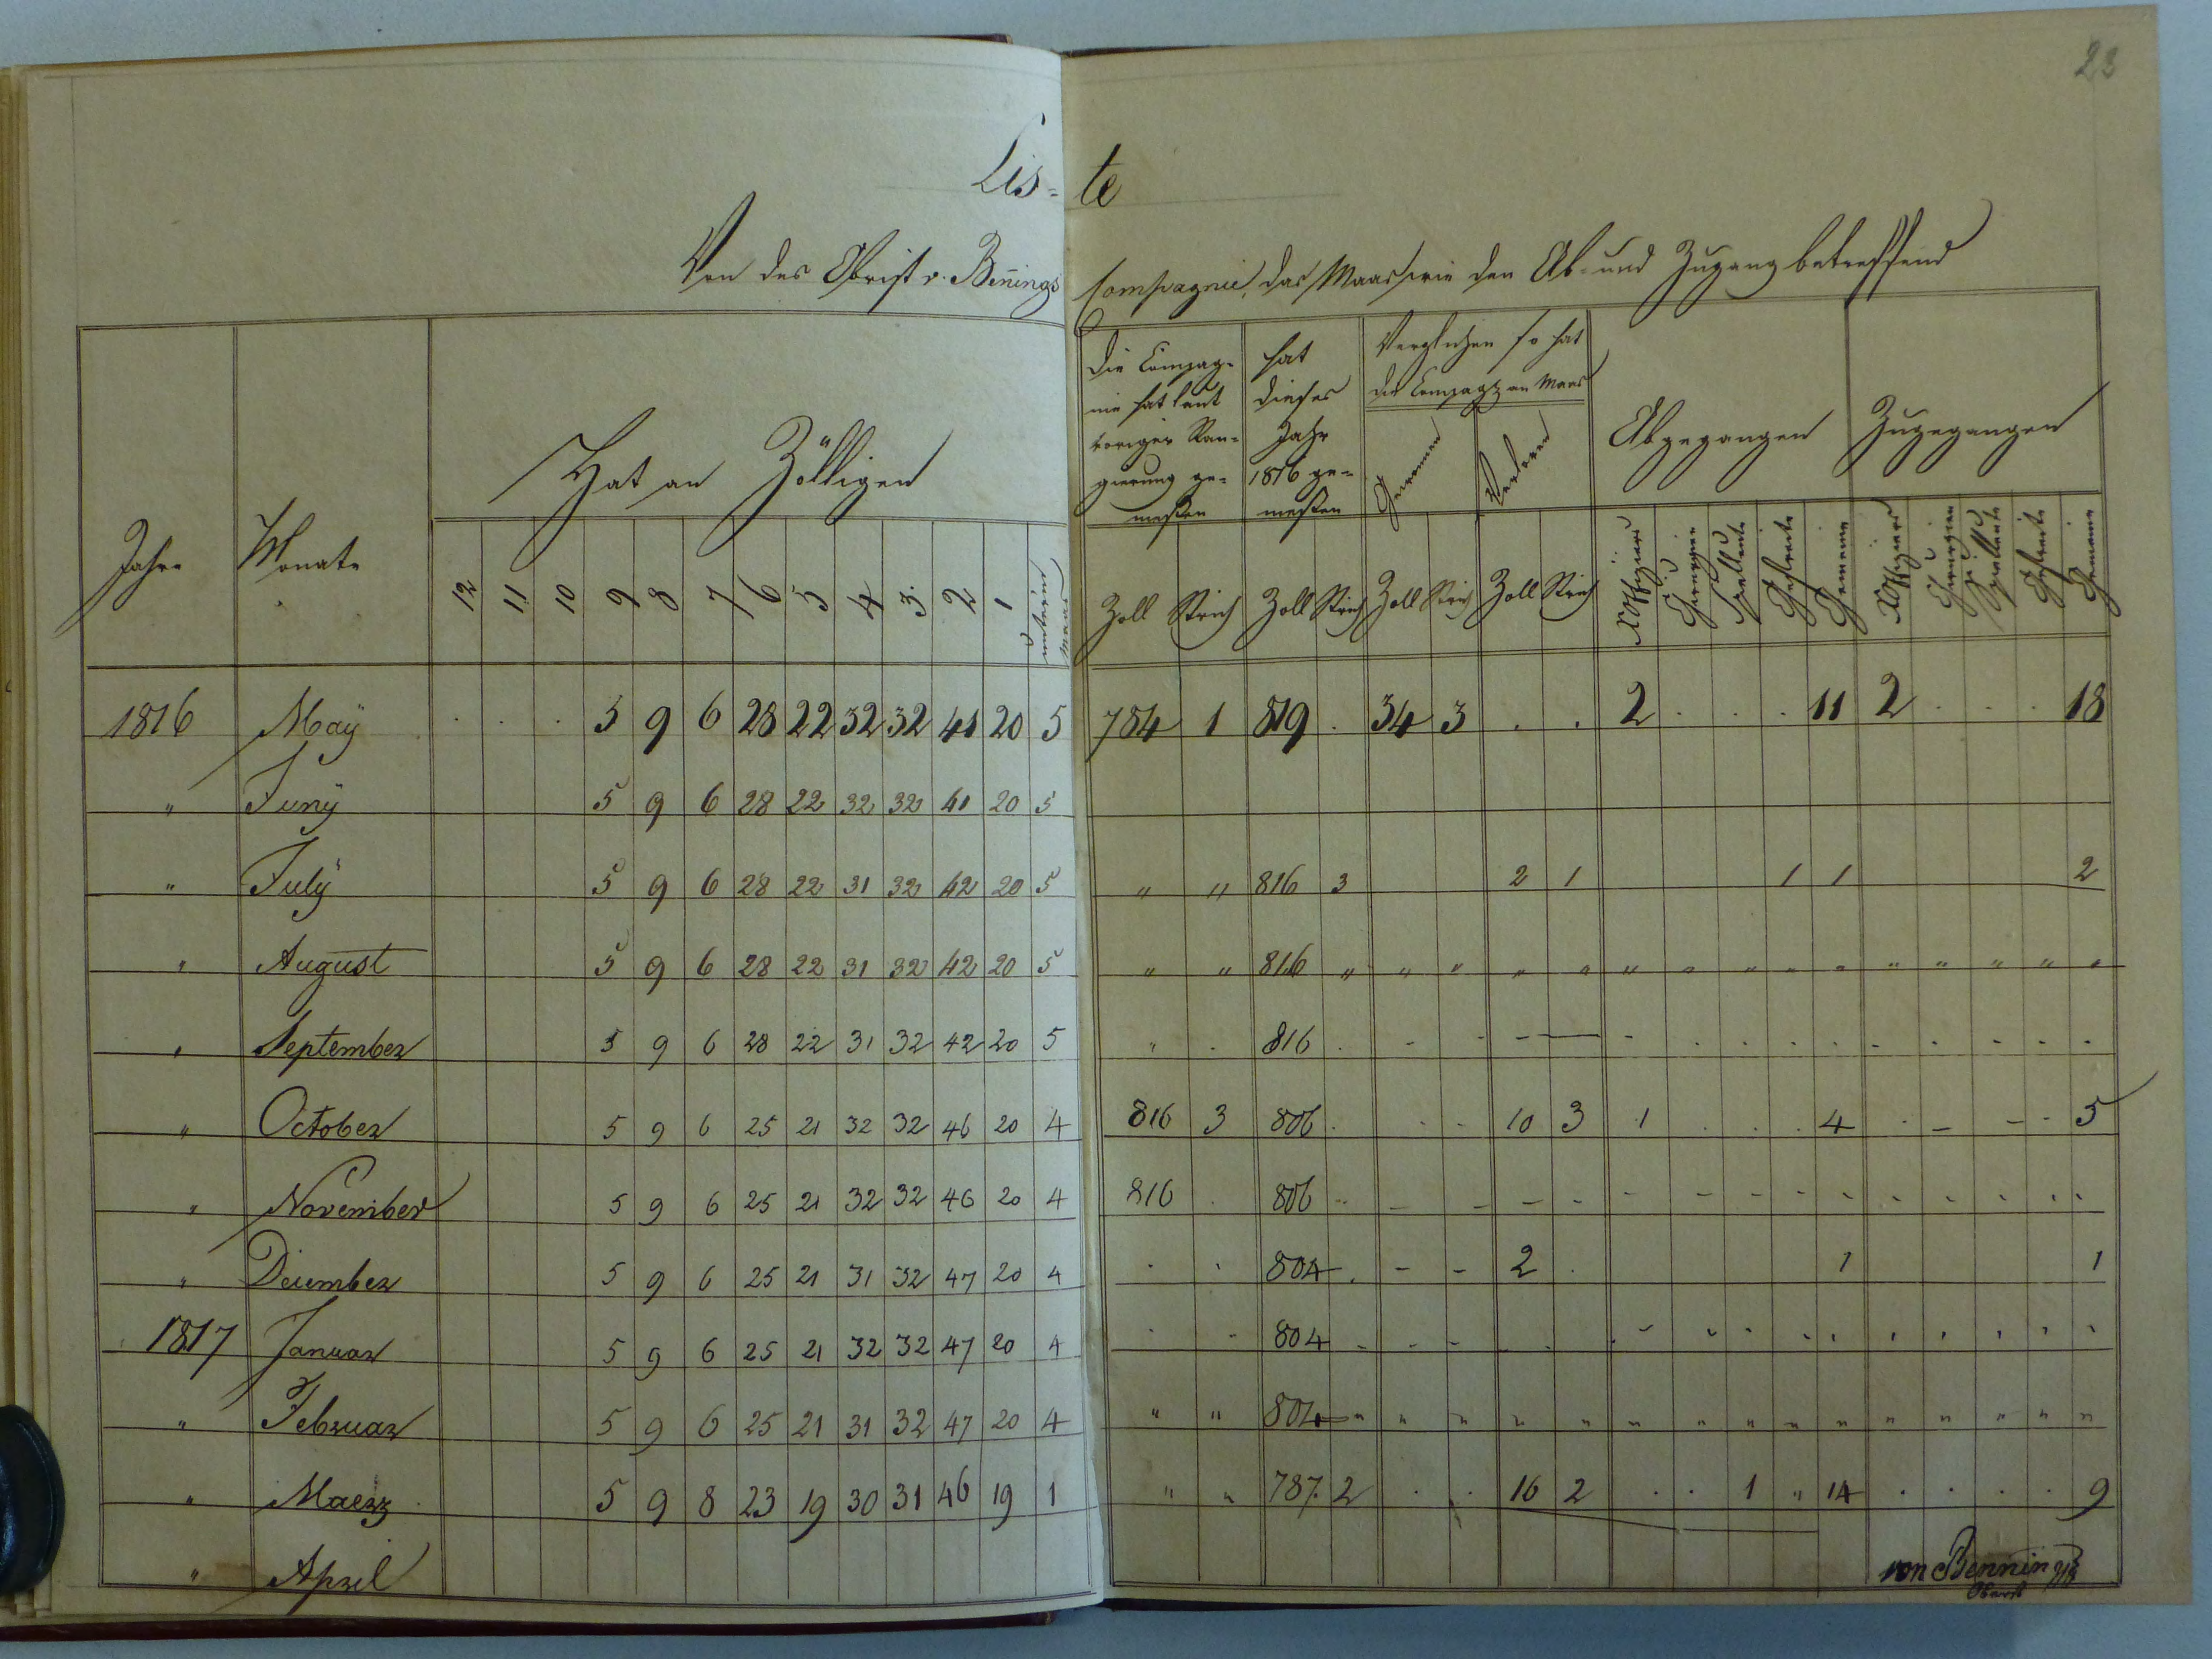 23
Lis= te
Von des Obrist v. Bennings Compagnie, das Maas wie den Ab= und Zugang betreffend
Jahre Monate Hat an Zölligen
12 11 10 9 8 7 6 5 4 3. 2 1 unterm Maas
Die Compag=
nie hat laut
voriger Ran=
gierung ge=
meßen
hat
dieses
Jahr
1816 ge=
meßen
Verglichen so hat
die Compag: an Maas
Gewonnen Verloren
Abgegangen Zugegangen
Zoll Strich Zoll Strich Zoll Strich Zoll Strich
UOffiziers Chirurgien Spielleute Gefreite Gemeine UOffiziers Chirurgien Spielleute Gefreite Gemeine
1816 Maÿ . . . 5 9 6 28 22 32 32 41 20 5 784 1 819 . 34 3 . . 2 . . . 11 2 . . . 18
" Junÿ 5 9 6 28 22 32 32 41 20 5
" Julÿ 5 9 6 28 22 31 32 42 20 5 " " 816 3 2 1 1 1 2
" August 5 9 6 28 22 31 32 42 20 5 " " 816 " " " " " " " " " " " " " " "
" September 5 9 6 28 22 31 32 42 20 5 " . 816 . - - - — - . . . . - - . . .
" October 5 9 6 25 21 32 32 46 20 4 816 3 806 . . . 10 3 1 . . . 4 . - - . 5
" November 5 9 6 25 21 32 32 46 20 4 816 . 806 " - - - - - - - - - - - - - -
" December 5 9 6 25 21 31 32 47 20 4 . . 804 . - - 2 . 1 1
1817 Januar 5 9 6 25 21 32 32 47 20 4 . . 804 - - - . . - - - - - - - - - -
" Februar 5 9 6 25 21 31 32 47 20 4 " " 804 " " " " " " " " " " " " " " "
" Maerz 5 9 8 23 19 30 31 46 19 1 " " 787. 2 . . 16 2 . . 1 " 14 . . . . 9
" April
von Bennings
Oberst